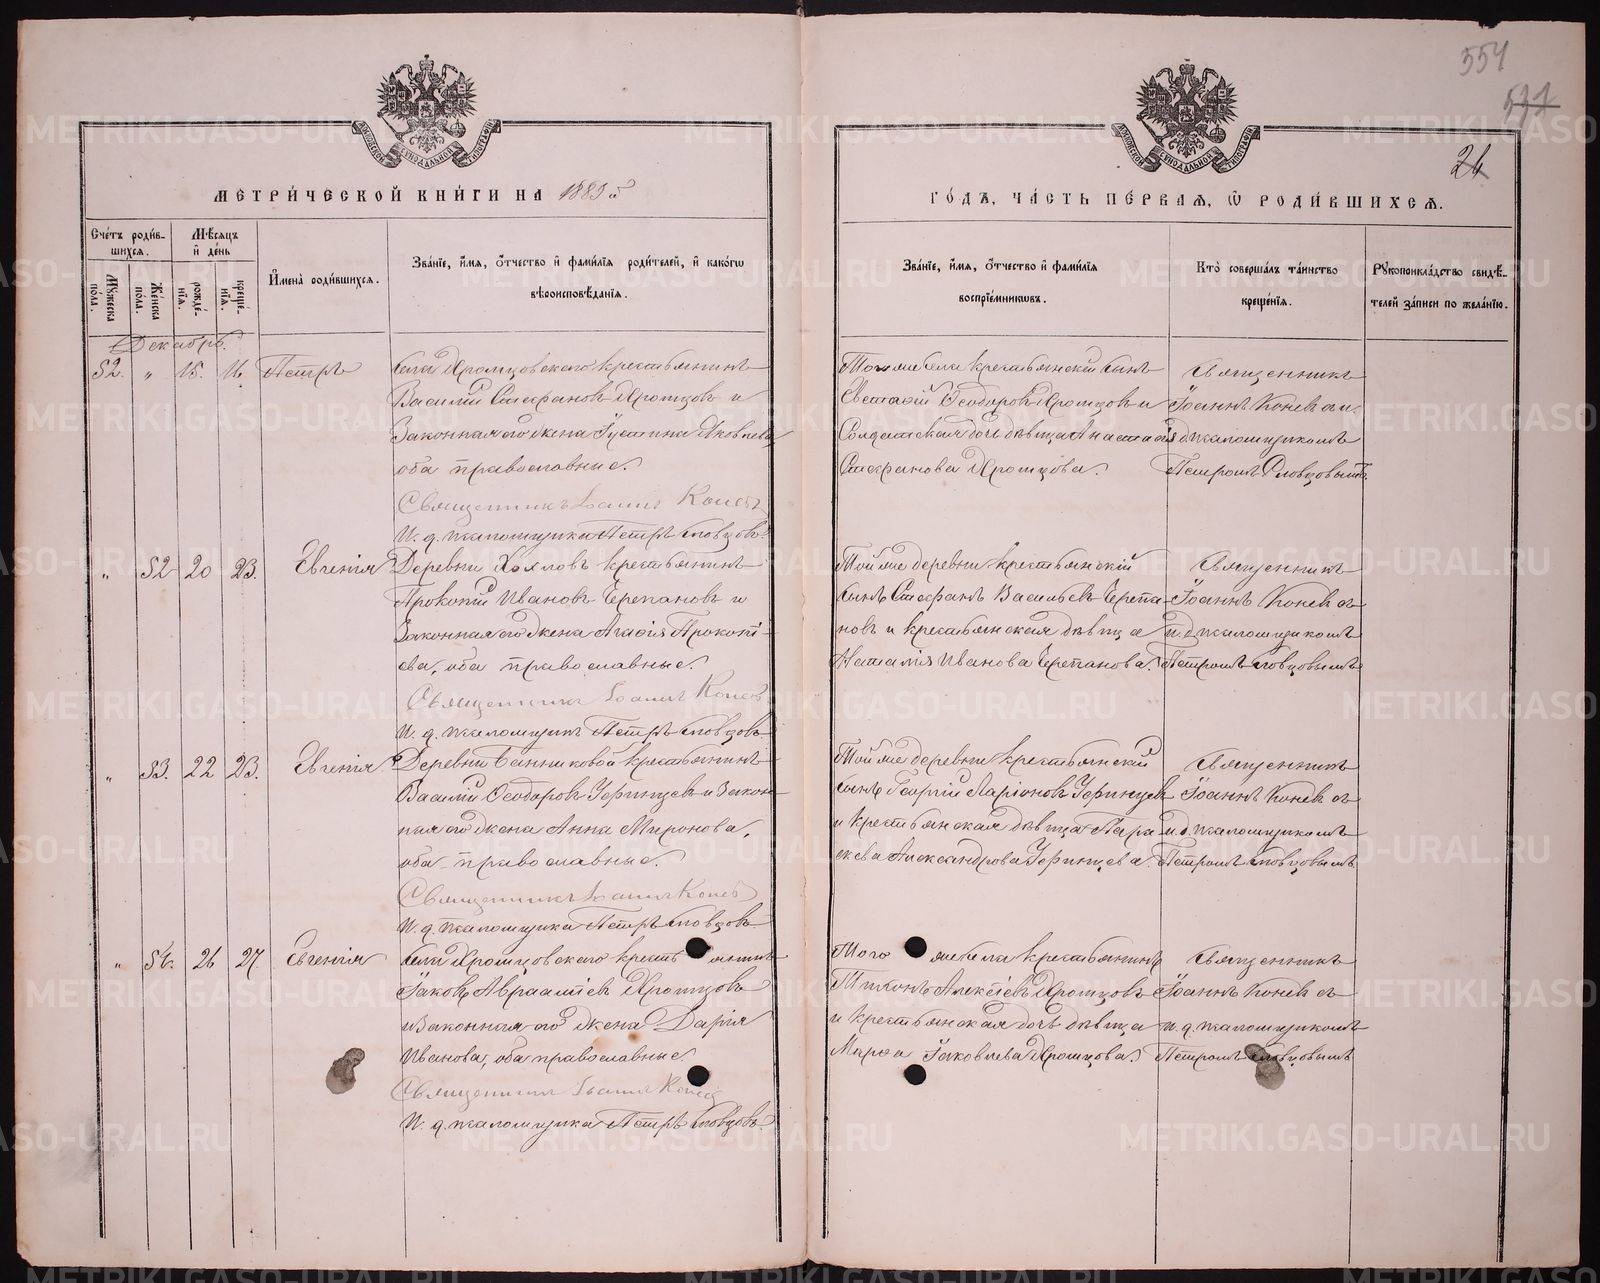 554
24
МЕТРИЧЕСКОЙ КНИГИ НА 1885
ГОДЪ, ЧАСТЬ ПЕРВАЯ, Ѡ РОДИВШИХСЯ.
Счетъ родившихся.
Мужеска пола.
Женска пола.
Мѣсяцъ и день
рожденія.
крещенія.
Имена родившихся.
Званіе, имя, отчество и фамилія родителей, и какогѡ
вѣроисповѣданія.
Званіе, имя, отчество и фамилія
воспріемникѡвъ.
Кто совершалъ таинство
крещенія.
Рукоприкладство свидѣ-
телей записи по желанію.
Декабрь.
52. " 15. 16. Петръ
села Хромцовскаго крестьянинъ
Василій Стефановъ Хромцовъ и
Законная его жена Іустина Яковлева
оба православные.
Священникъ Іоаннъ Коневъ
И. д. псаломщика Петръ Словцовъ
Того же села крестьянскій сынъ
Евстафій Ѳеодоровъ Хромцовъ и
Солдатская дочь дѣвица Анастасія
Стефанова Хромцова.
Священникъ
Іоаннъ Коневъ съ и.
д. псаломщикомъ
Петромъ Словцовымъ.
" 52 20 23. Евгенія
Деревни Хохловъ крестьянинъ
Прокопій Ивановъ Черепановъ и
Законная его жена Агафія Прокопі-
ева, оба православные.
Священникъ Іоаннъ Коневъ
И. д. псаломщика Петръ Словцовъ
Той же деревни крестьянскій
сынъ Стефанъ Васильевъ Черепа-
новъ и крестьянская дѣвица
Наталія Иванова Черепанова.
Священникъ
Іоаннъ Коневъ съ
и. д. псаломщикомъ
Петромъ Словцовымъ
" 53. 22 23. Евгенія
Деревни Банниковой крестьянинъ
Василій Ѳеодоровъ Уфинцевъ и Закон-
ная его жена Анна Миронова,
оба православные.
Священникъ Іоаннъ Коневъ
И. д. псаломщика Петръ Словцовъ
Той же деревни крестьянскій
сынъ Георгій Ларіоновъ Уфинцевъ
и крестьянская дѣвица Пара-
скева Александрова Уфинцева.
Священникъ
Іоаннъ Коневъ съ
и. д. псаломщикомъ
Петромъ Словцовымъ
" 54. 26 27. Евгенія
села Хромцовскаго крестьянинъ
Іаковъ Авраамовъ Хромцовъ
и Законная его жена Дарія
Иванова, оба православные.
Священникъ Іоаннъ Коневъ
И. д. псаломщика Петръ Словцовъ.
Того же села крестьянинъ
Тихонъ Алексіевъ Хромцовъ
и крестьянская дочь дѣвица
Марѳа Іаковлева Хромцова.
Священникъ
Іоаннъ Коневъ съ
и. д. псаломщикомъ
Петромъ Словцовымъ
METRIKI.GASO-URAL.RU